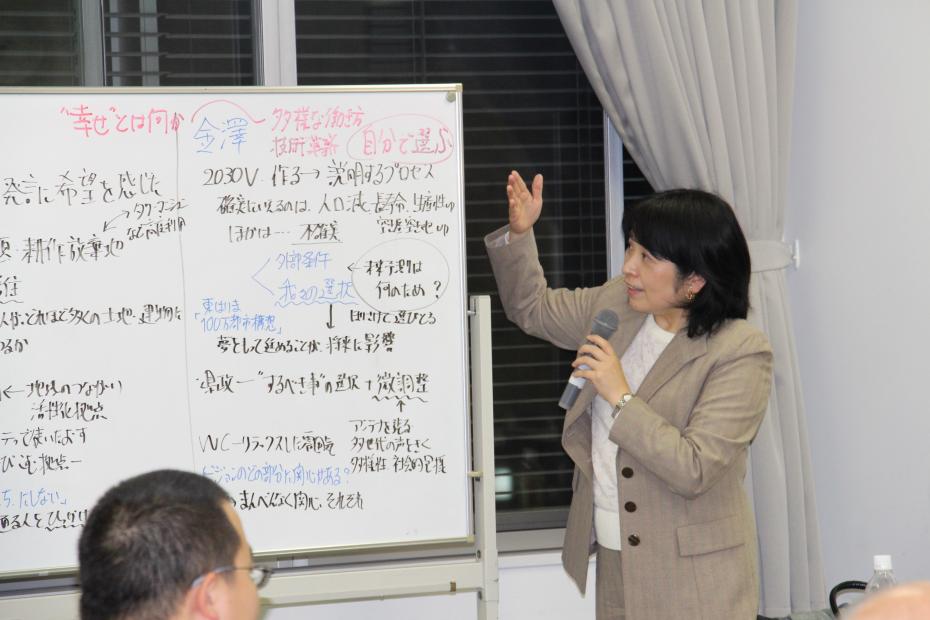 "幸せ"とは何か
発言に希望を感じた
タワーマンション
など高度利用
耕作放棄地
ほど多くの土地・建物
るか
←地域のつながり
活性化拠点
って使いたおす
び込む拠点一
にしない」
ある人をひっぱり
金澤
多様な働き方
技術革新
自分で選ぶ
2030V 作る→説明するプロセス
確実にいえるのは、人口減、長寿命、生産性ゆ
空家空き地ゆ
ほかは… 不確実
外部条件
我々の選択
←未来予測は
何のため?
東はりま
「100万都市構想」
目がけて選びとる
夢として進めることが、将来に影響
県政一"するべき事"の選択+微調整
アンテナを張る
多世代の声をきく
多様性 社会的包摂
WC-リラックスした
ビジョンのどの部分に関心がある?
まんべんなく関心、それぞれ